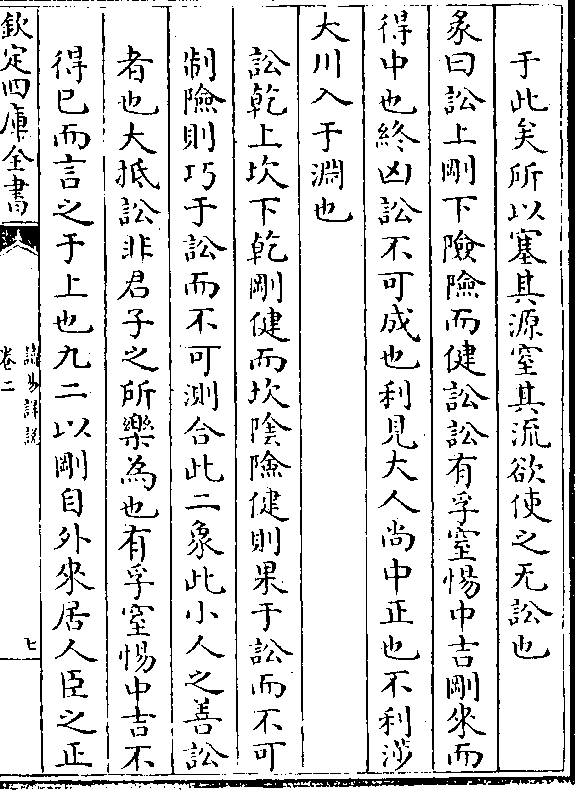 于此矣所以塞其源窒其流欲使之无訟也
彖曰訟上剛下險險而健訟訟有孚窒惕中吉剛來而
得中也終凶訟不可成也利見大人尚中正也不利涉
大川入于淵也
訟乾上坎下乾剛健而坎陰險健則果于訟而不可
制險則巧于訟而不可測合此二象此小人之善訟
者也大抵訟非君子之所樂為也有孚窒惕中吉不
得已而言之于上也九二以剛自外來居人臣之正
欽定四庫全書
讀易詳說
卷二
七